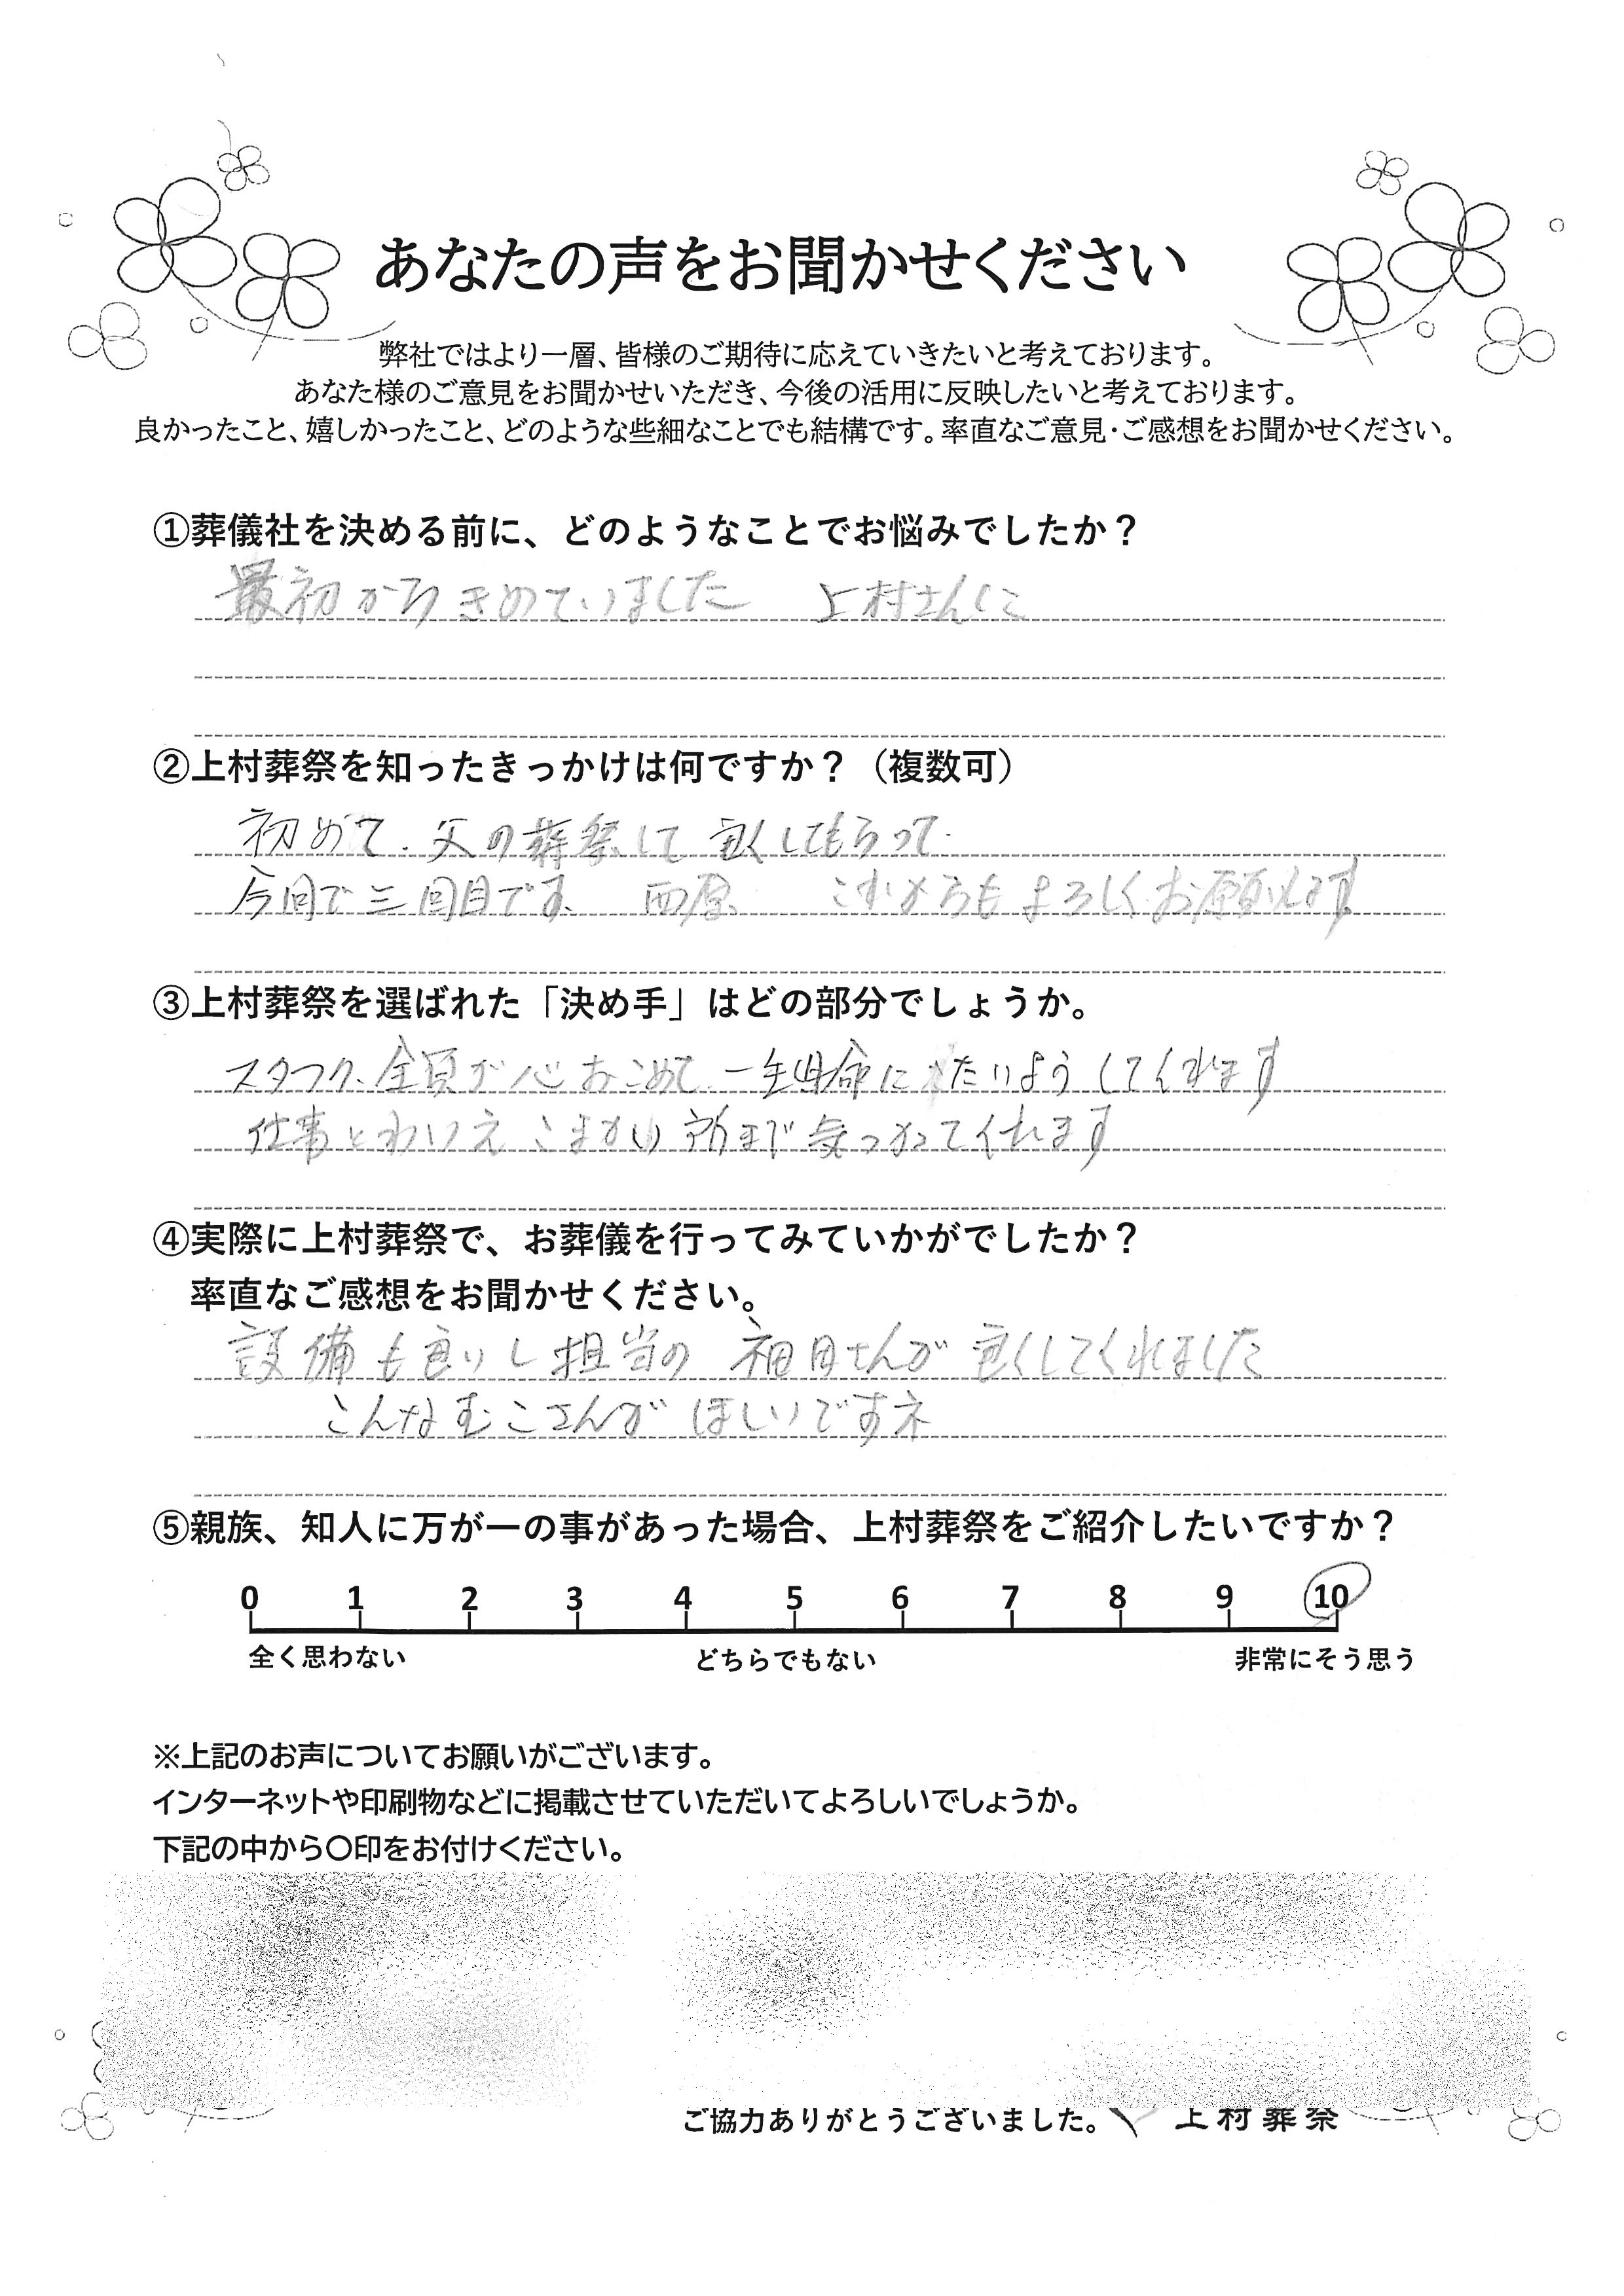 あなたの声をお聞かせください
弊社ではより一層、皆様のご期待に応えていきたいと考えております。
あなた様のご意見をお聞かせいただき、今後の活用に反映したいと考えております。
良かったこと、嬉しかったこと、どのような些細なことでも結構です。率直なご意見・ご感想をお聞かせください。
①葬儀社を決める前に、どのようなことでお悩みでしたか？
最初からきめていました 上村さんに
②上村葬祭を知ったきっかけは何ですか？（複数可）
初めて、父の葬祭して良くしてもらって
今回で三回目です。 西原 これからもよろしくお願いします
③上村葬祭を選ばれた「決め手」はどの部分でしょうか。
スタッフ、全員が心おこめて一生県命にたいようしてくれます
仕事とわいえこまかい所まで気つかってくれます
④実際に上村葬祭で、お葬儀を行ってみていかがでしたか？
率直なご感想をお聞かせください。
設備も良いし担当の さんが良くしてくれました
こんなむこさんがほしいですネ
⑤親族、知人に万が一の事があった場合、上村葬祭をご紹介したいですか？
0 1 2 3 4 5 6 7 8 9 10
全く思わない どちらでもない 非常にそう思う
※上記のお声についてお願いがございます。
インターネットや印刷物などに掲載させていただいてよろしいでしょうか。
下記の中から〇印をお付けください。
ご協力ありがとうございました。 上村葬祭